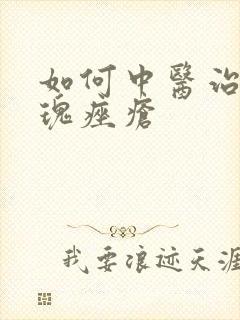 如何中醫治
瑰痤瘡
我要浪迹天涯